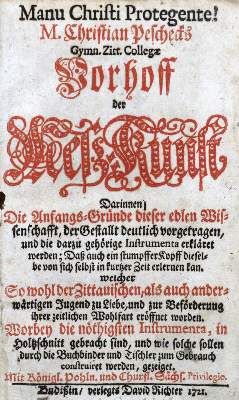 Manu Christi Protegente!
M. Christian Peschecks
Gymn. Zitt. Collegæ
Vorhoff
der
Meß-Kunst
Darinnen
Die Anfangs-Gründe dieser edlen Wis-
senschafft, der Gestallt deutlich vorgetragen,
und die darzu gehörige Instrumenta erkläret
werden; Daß auch ein stumpffer Kopff diesel-
be von sich selbst in kurtzer Zeit erlernen kan.
welcher
So wohl der Zittauischen, als auch ander-
wärtigen Jugend zu Liebe, und zur Beförderung
ihrer zeitlichen Wohlfart eröffnet worden.
Worbey die nöthigsten Instrumenta, in
Holtzschnitt gebracht sind, und wie solche sollen
durch die Buchbinder und Tischler zum Gebrauch
construiret werden, gezeiget.
Mit Königl. Pohln. und Churfl. Sächs. Privilegio.
Budißin/ verlegts David Richter 1721.